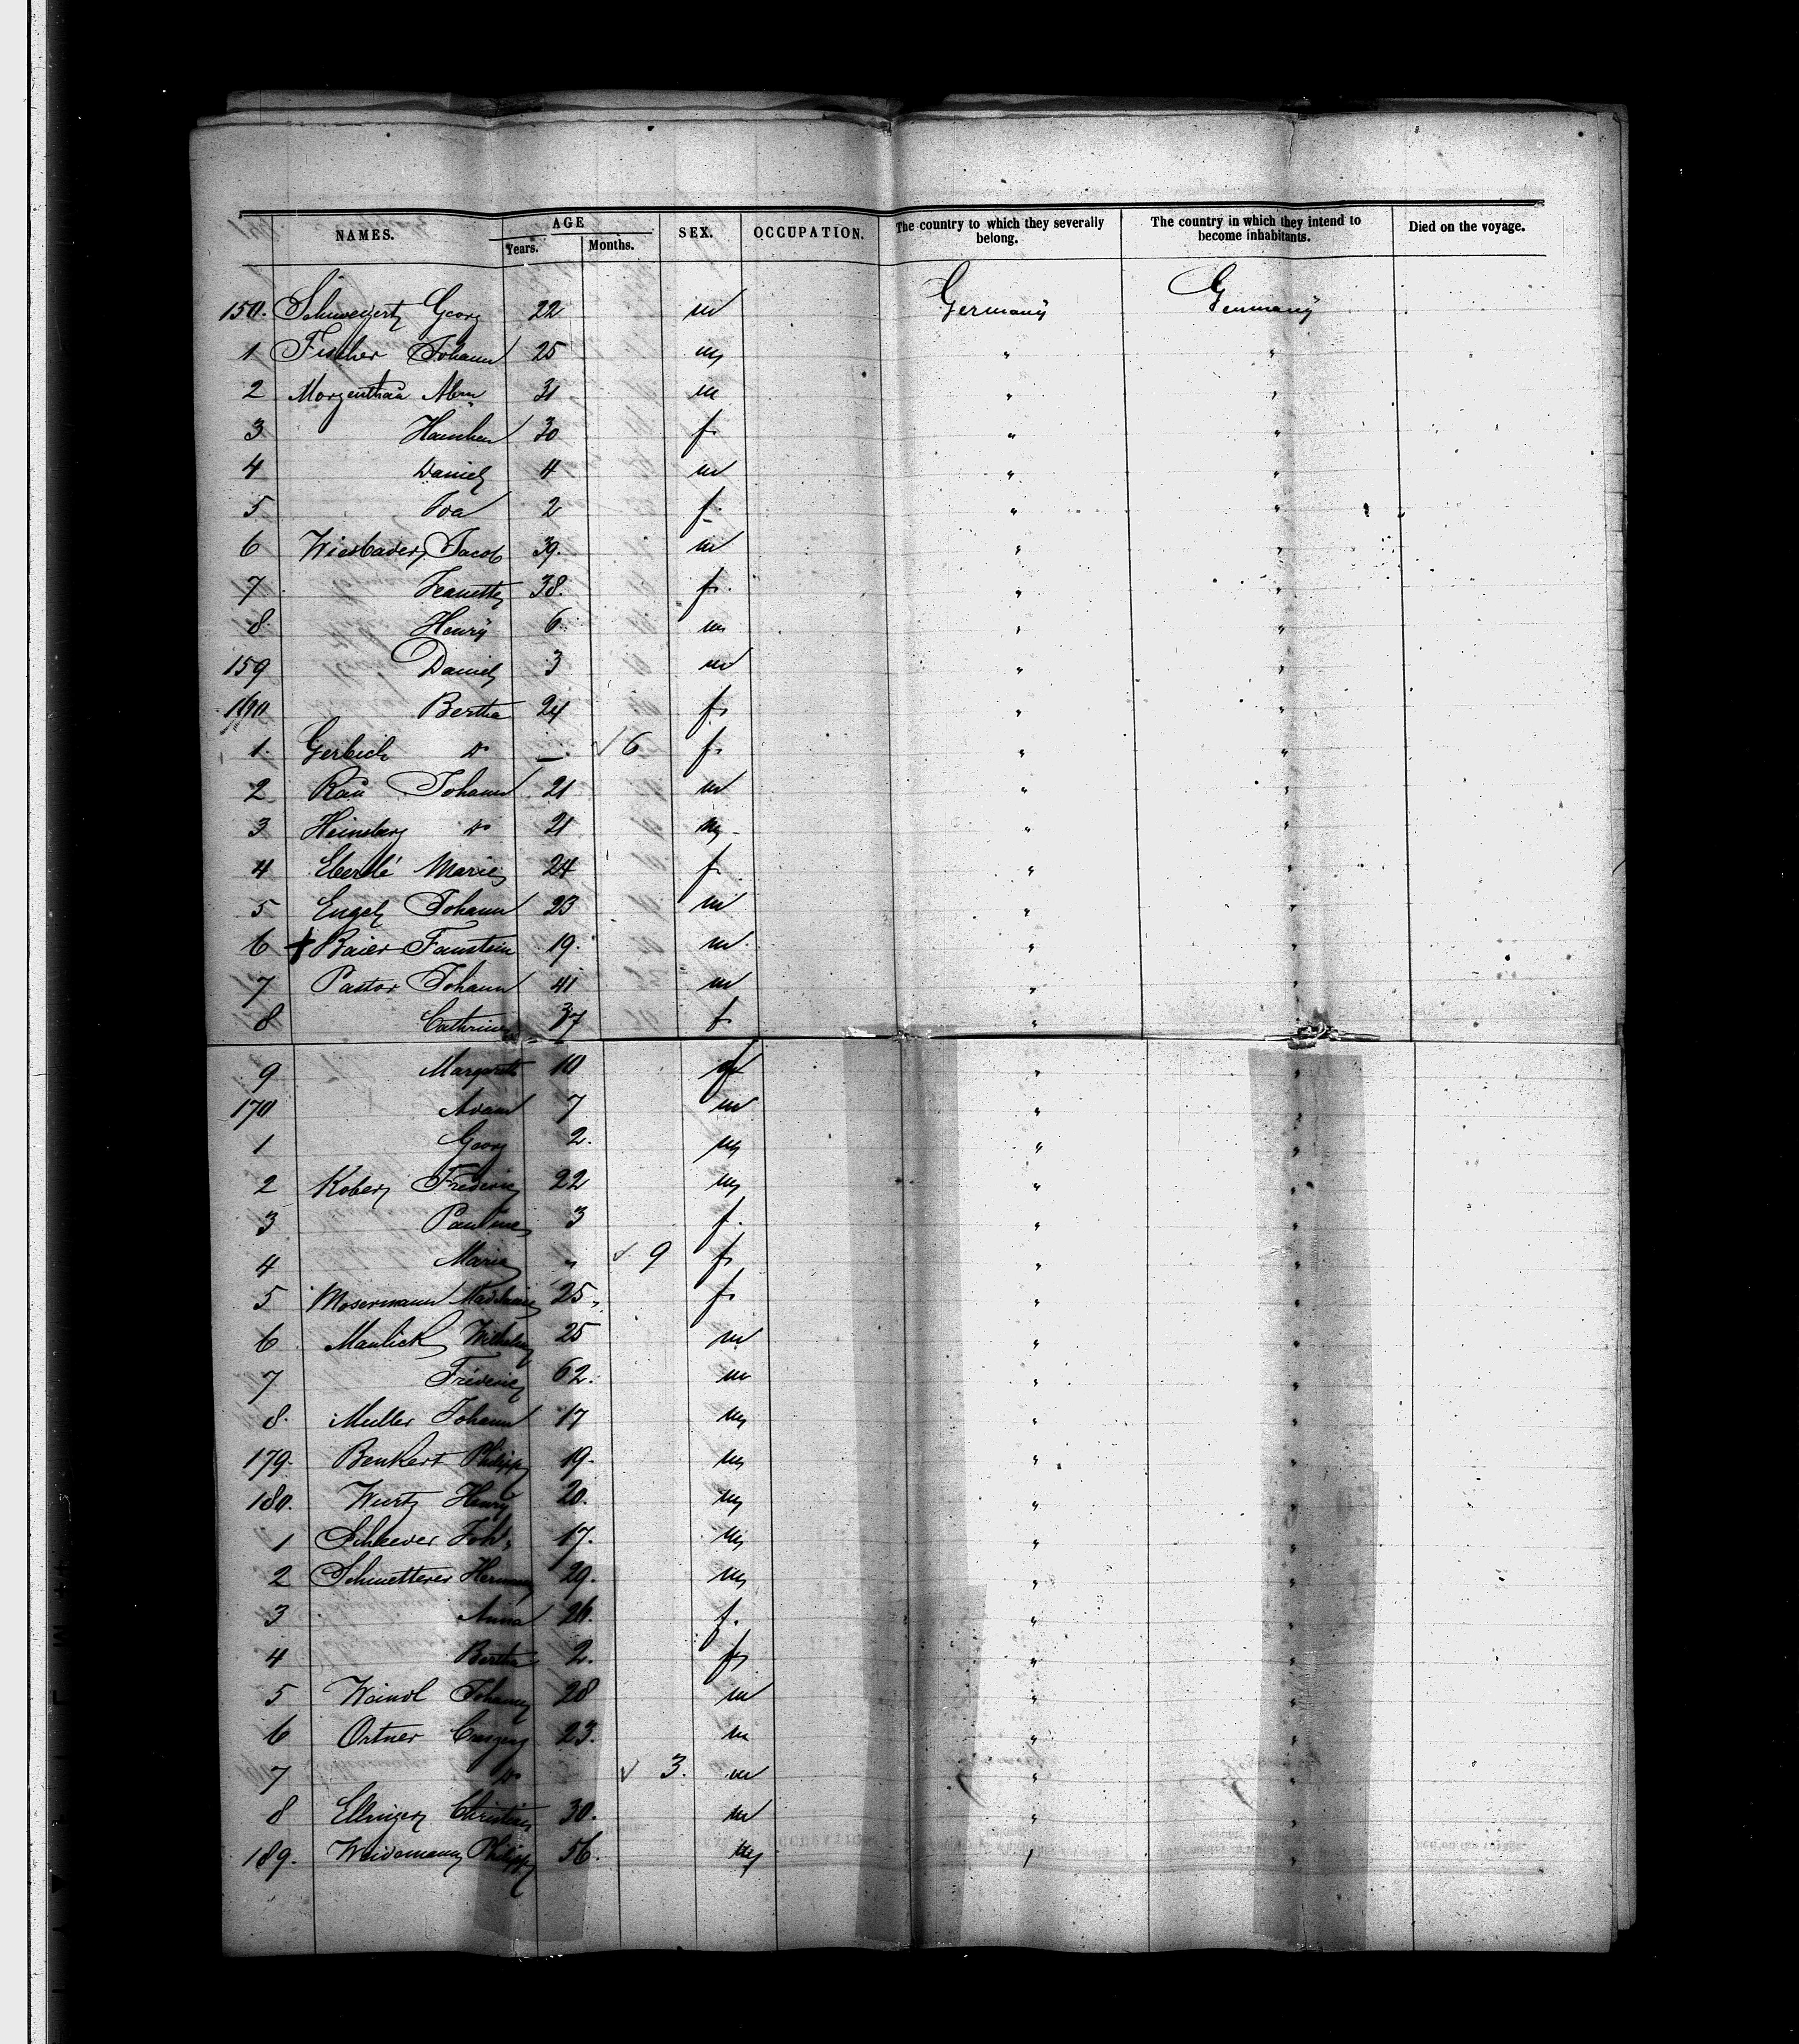 NAMES. AGE Years. Months. SEX. OCCUPATION. The country to which they severally belong. The country in which they intend to become inhabitants. Died on the voyage.
150. Schweizert Georg 22 m Germany Germany
1 Fischer Johann 25 m " "
2 Morgenthau Abm 31 m " "
3 Hannchen 30 f " "
4 Daniel 4 m " "
5 Ida 2 f " "
6 Wiesbader Jacob 39. m " "
7 Jeanette 38. f " "
8 Henry 6 m " "
159 Daniel 3 m " "
160 Bertha 24 f " "
1. Gerbich do — √ 6 f " "
2 Rau Johann 21 m " "
3 Heinsberg do 21 m " "
4 Eberlé Marie 24 f " "
5 Engel Johann 23 m " "
6 + Baier Faustein 19. m " "
7 Pastor Johann 41 m " "
8 Cathrine 37 f "
9 Margareth 10 f " "
170 Adam 7 m " "
1 Georg 2. m " "
2 Kober Frederic 22 m " "
3 Pauline 3 f " "
4 Marie " √ 9 f " "
5 Mosermann Madelaine 25 f " "
6 Manlick Wilhelm 25 m " "
7 Frederic 62. m " "
8. Muller Johann 17 m " "
179. Benkert Philipp 19. m " "
180. Wurtz Henry 20. m " "
1 Schaever Joh. 17. m " "
2 Schmetterer Hermann 29. m " "
3 Anna 26. f " "
4 Bertha 2. f " "
5 Weindl Johann 28 m " "
6 Ortner 23. m " "
7 do √ 3. m " "
8 Ellinger Christine 30. m " "
189. Weidemann Philipp 56. m " "